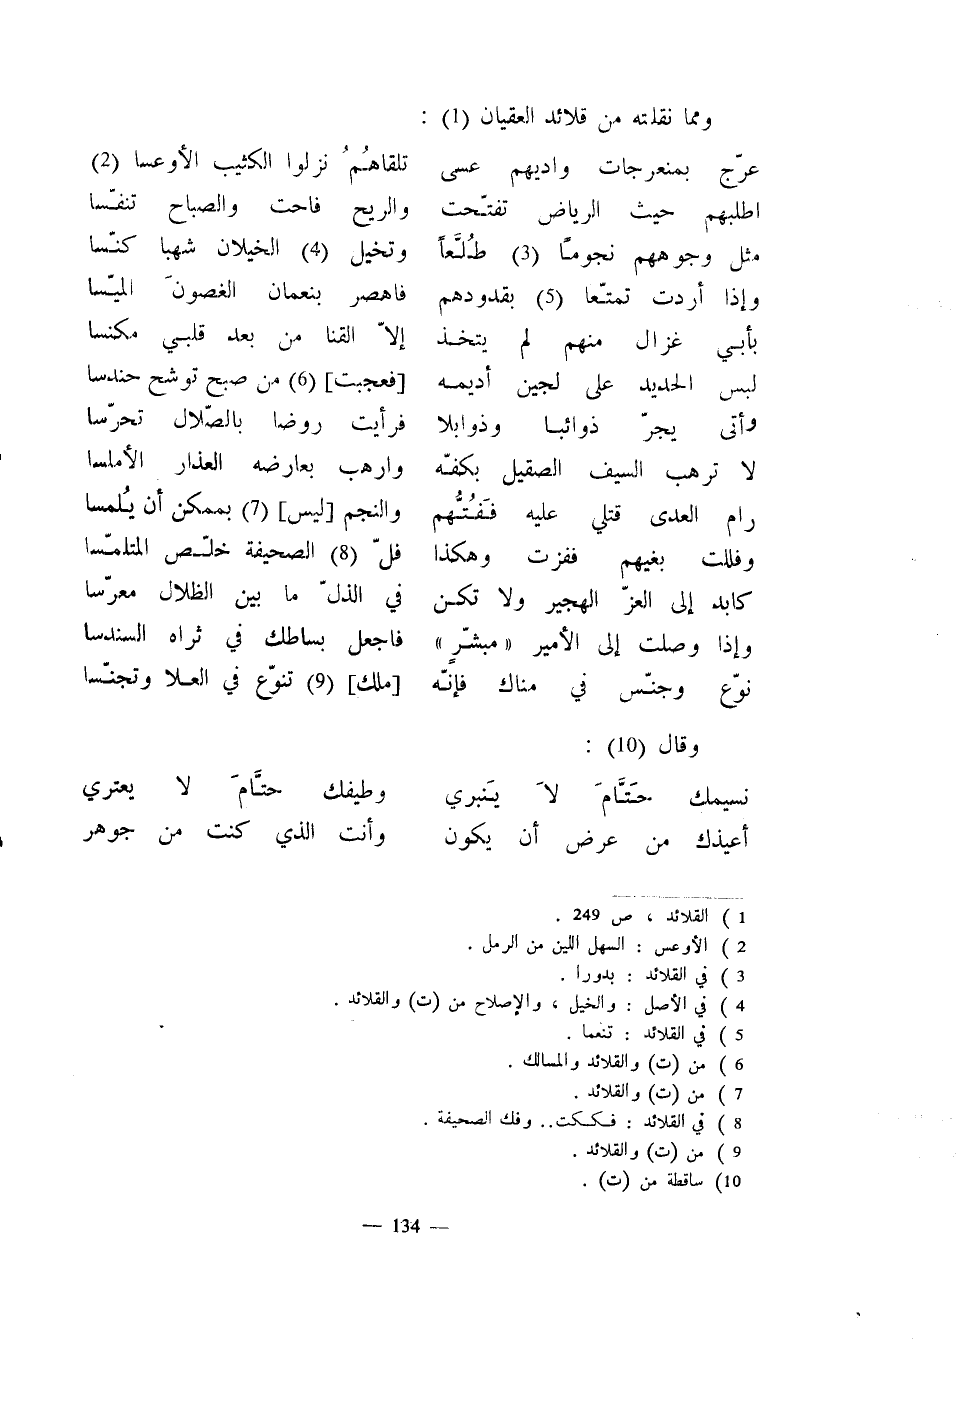 ومما نقلته من قلائد العقيان (1) :
عرّج بمنعرجات واديهم عسى تلقاهُمُ نزلوا الكثيب الأوعسا (2)
اطلبهم حيث الرياض تفتّحت والريح فاحت والصباح تنفّسا
مثل وجوههم نجوماً (3) طُلَّعاً وتخيل (4) الخيلان شهبا كنّسا
وإذا أردت تمتّعا (5) بقدودهم فاهصر بنعمان الغصونَ الميّسا
بأبي غزال منهم لم يتخذ إلاّ القنا من بعد قلبي مكنسا
لبس الحديد على لجين أديمه [فعجبت] (6) من صبح توشح حندسا
وأتى يجرّ ذوائبا وذوابلا فرأيت روضا بالصّلال تحرّسا
لا ترهب السيف الصقيل بكفّه وارهب بعارضه العذار الأملسا
رام العدى قتلي عليه فَفُتُّهم والنجم [ليس] (7) بممكن أن يُلمسا
وفللت بغيهم ففزت وهكذا فلّ (8) الصحيفة خلّص المتلمّسا
كابد إلى العزّ الهجير ولا تكن في الذلّ ما بين الظلال معرّسا
وإذا وصلت إلى الأمير «مبشّرٍ» فاجعل بساطك في ثراه السندسا
نوّع وجنّس في مناك فإنّه [ملك] (9) تنوّع في العلا وتجنّسا
وقال (10) :
نسيمك حَتَّامَ لاَ يَنبري وطيفك حتَّامَ لا يعتري
أعيذك من عرض أن يكون وأنت الذي كنت من جوهر
1 ) القلائد ، ص 249 .
2 ) الأوعس : السهل اللين من الرمل .
3 ) في القلائد : بدورا .
4 ) في الأصل : والخيل ، والإصلاح من (ت) والقلائد .
5 ) في القلائد : تنعما .
6 ) من (ت) والقلائد والمسالك .
7 ) من (ت) والقلائد .
8 ) في القلائد : فككت.. وفك الصحيفة .
9 ) من (ت) والقلائد .
10) ساقطة من (ت) .
— 134 —